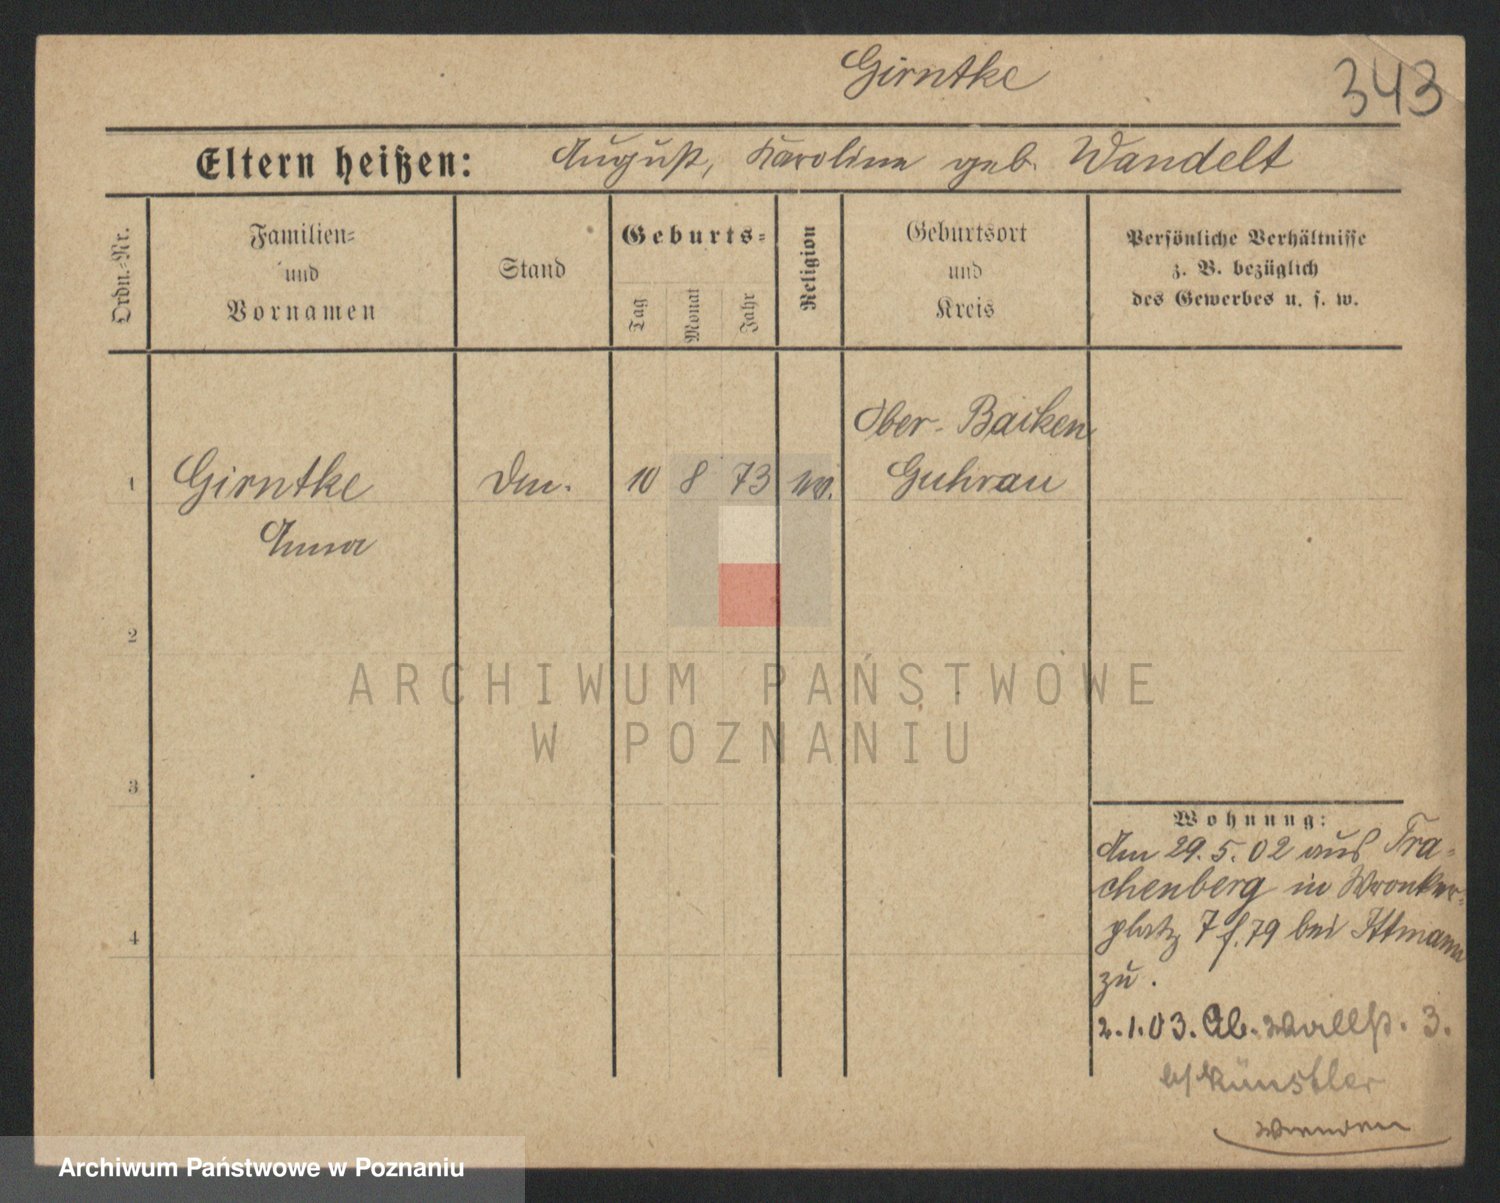 Girntke
343
Eltern heißen: August, Karoline geb. Wandelt
Ordn.-Nr.
Familien-
und
Vornamen
Stand
Geburts-
Tag
Monat
Jahr
Religion
Geburtsort
und
Kreis
Persönliche Verhältnisse
z. B. bezüglich
des Gewerbes u. s. w.
Ober-Backen
1 Girntke 10 8 73 Guhrau
Anna
2
3
4
ARCHIWUM PAŃSTWOWE
W POZNANIU
Wohnung:
Am 29.5.02 aus Tra-
chenberg in Wronker-
platz 7 f. 79 bei Ittmann
zu.
2.1.03. Ab. Wallst. 3.
b/Künstler
Wenden
Archiwum Państwowe w Poznaniu